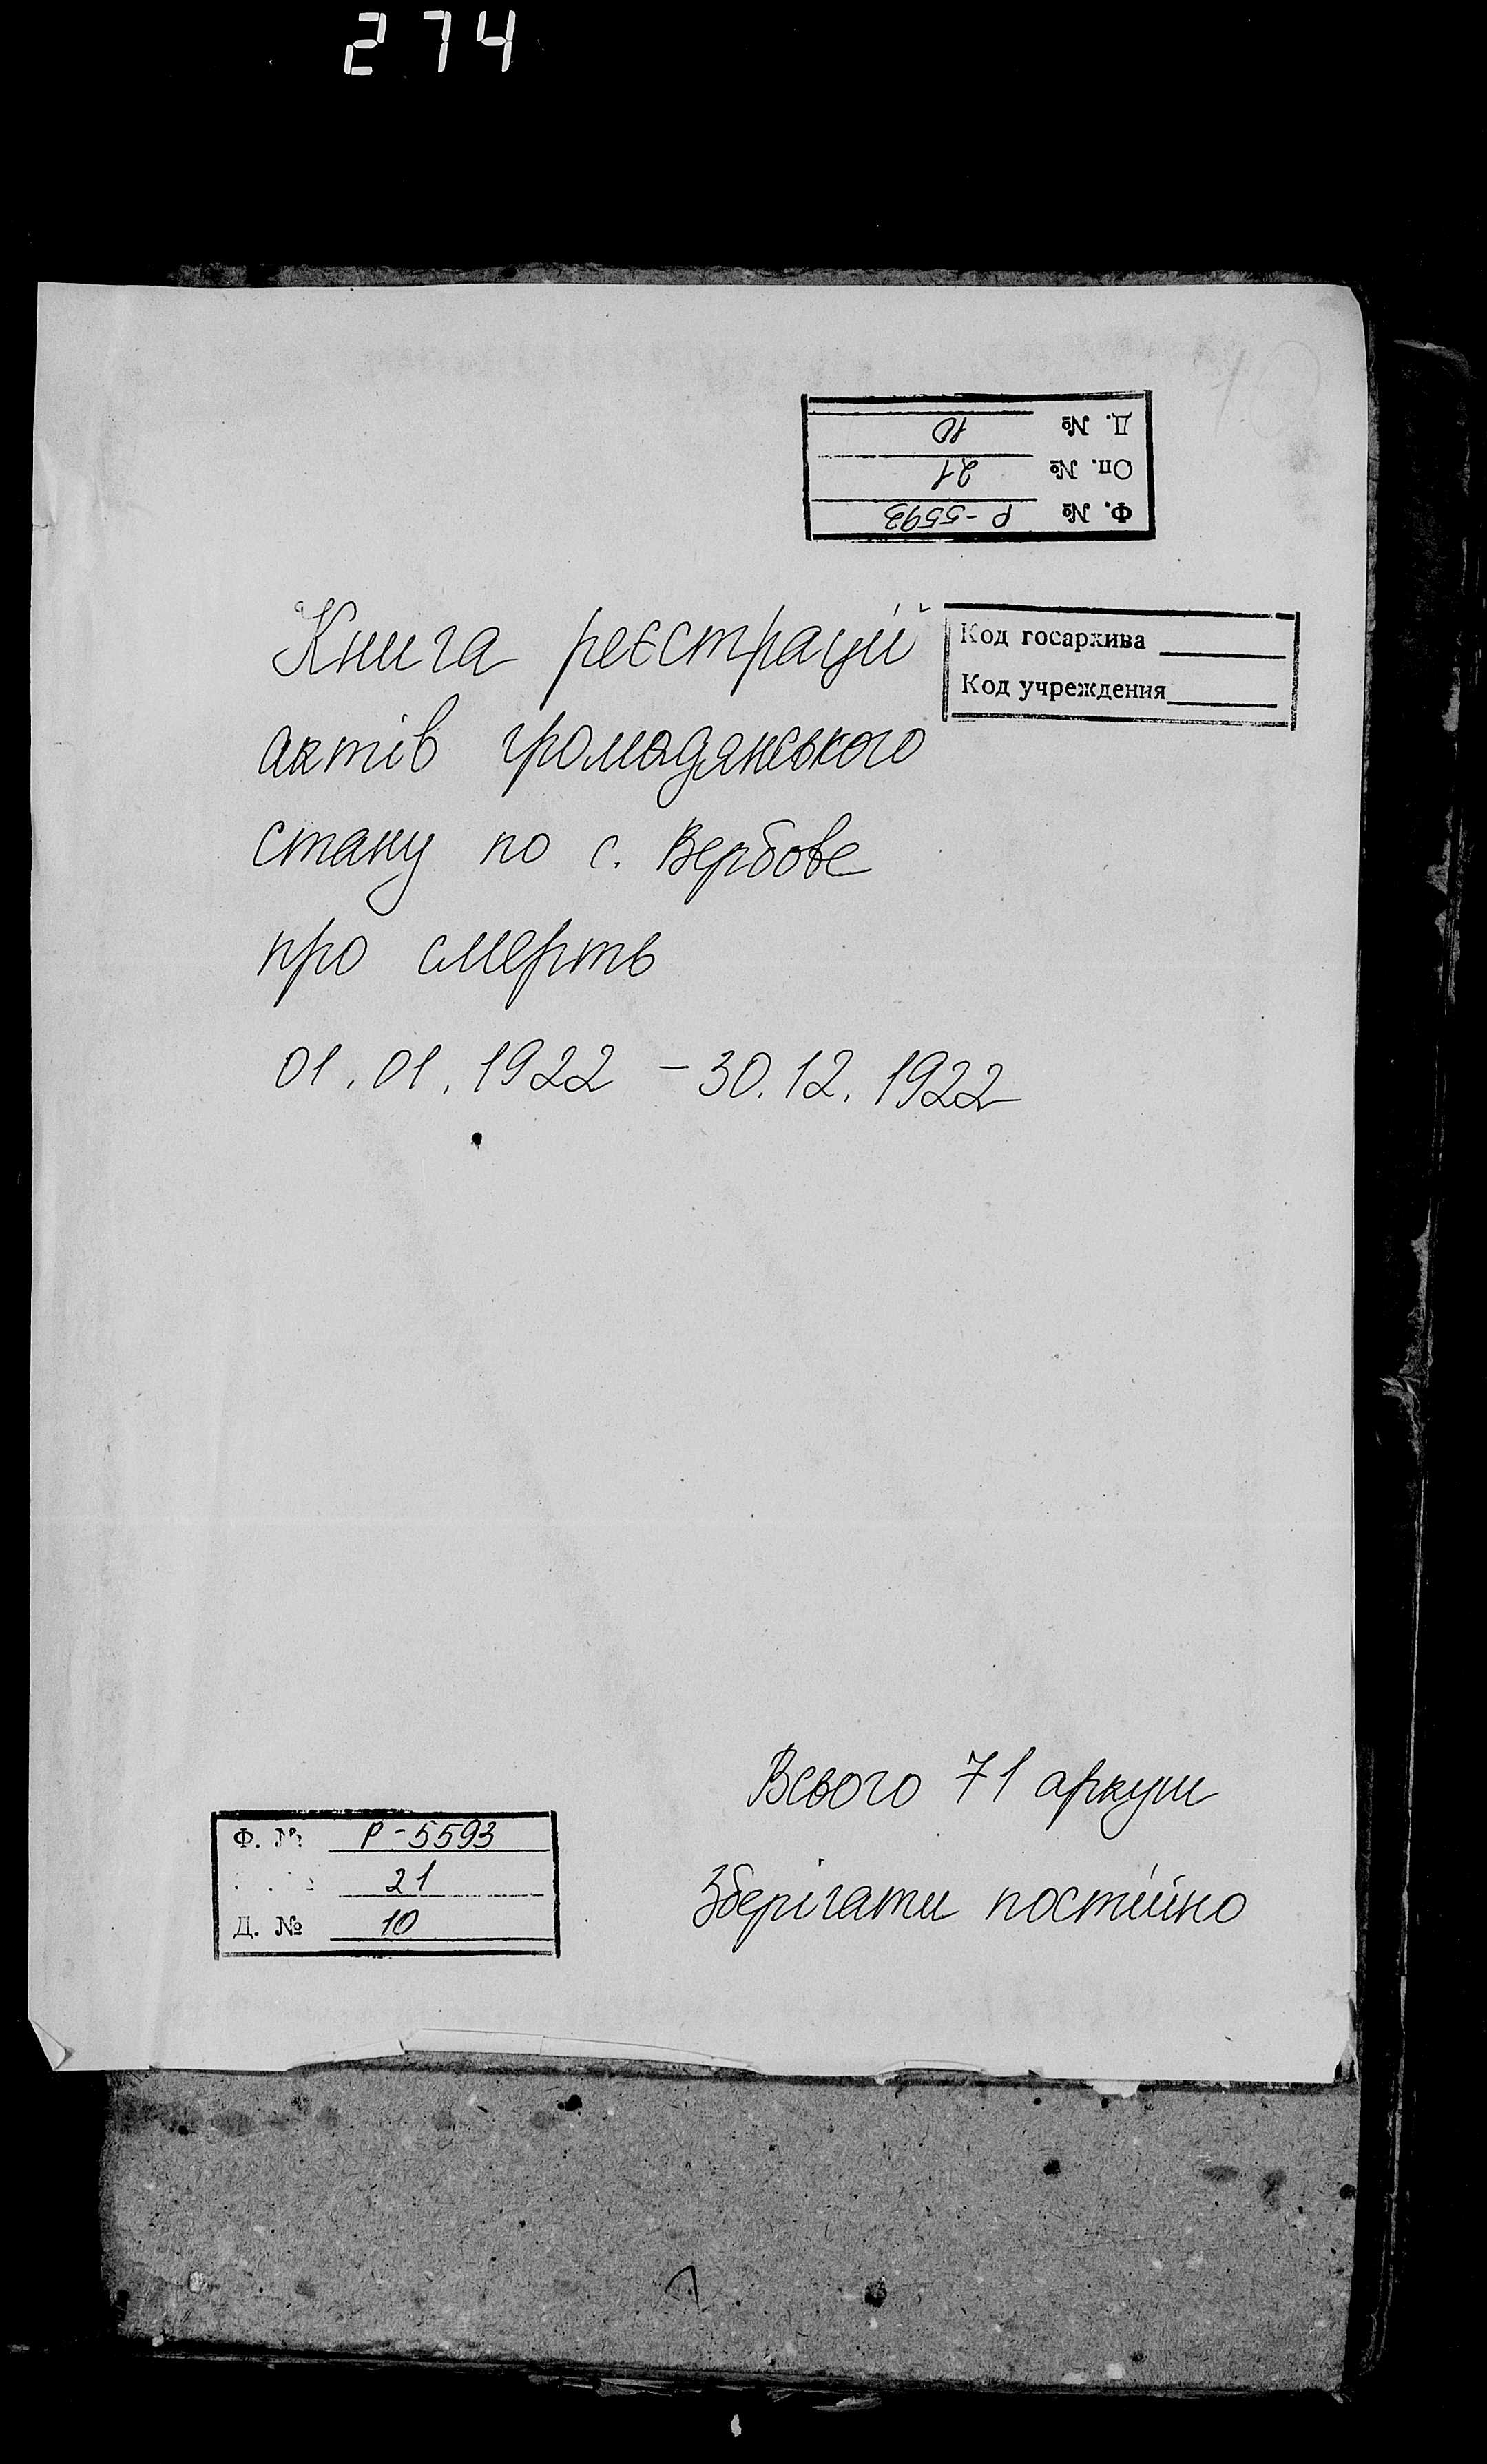 274
Д. № 10
Оп. № 21
Ф. № Р-5593
Книга реєстрації
Код госархива
Код учреждения
актів громадянського
стану по с. Вербове
про смерть
01.01.1922 - 30.12.1922
Всього 71 аркуш
Зберігати постійно
Ф. № Р-5593
21
Д. № 10